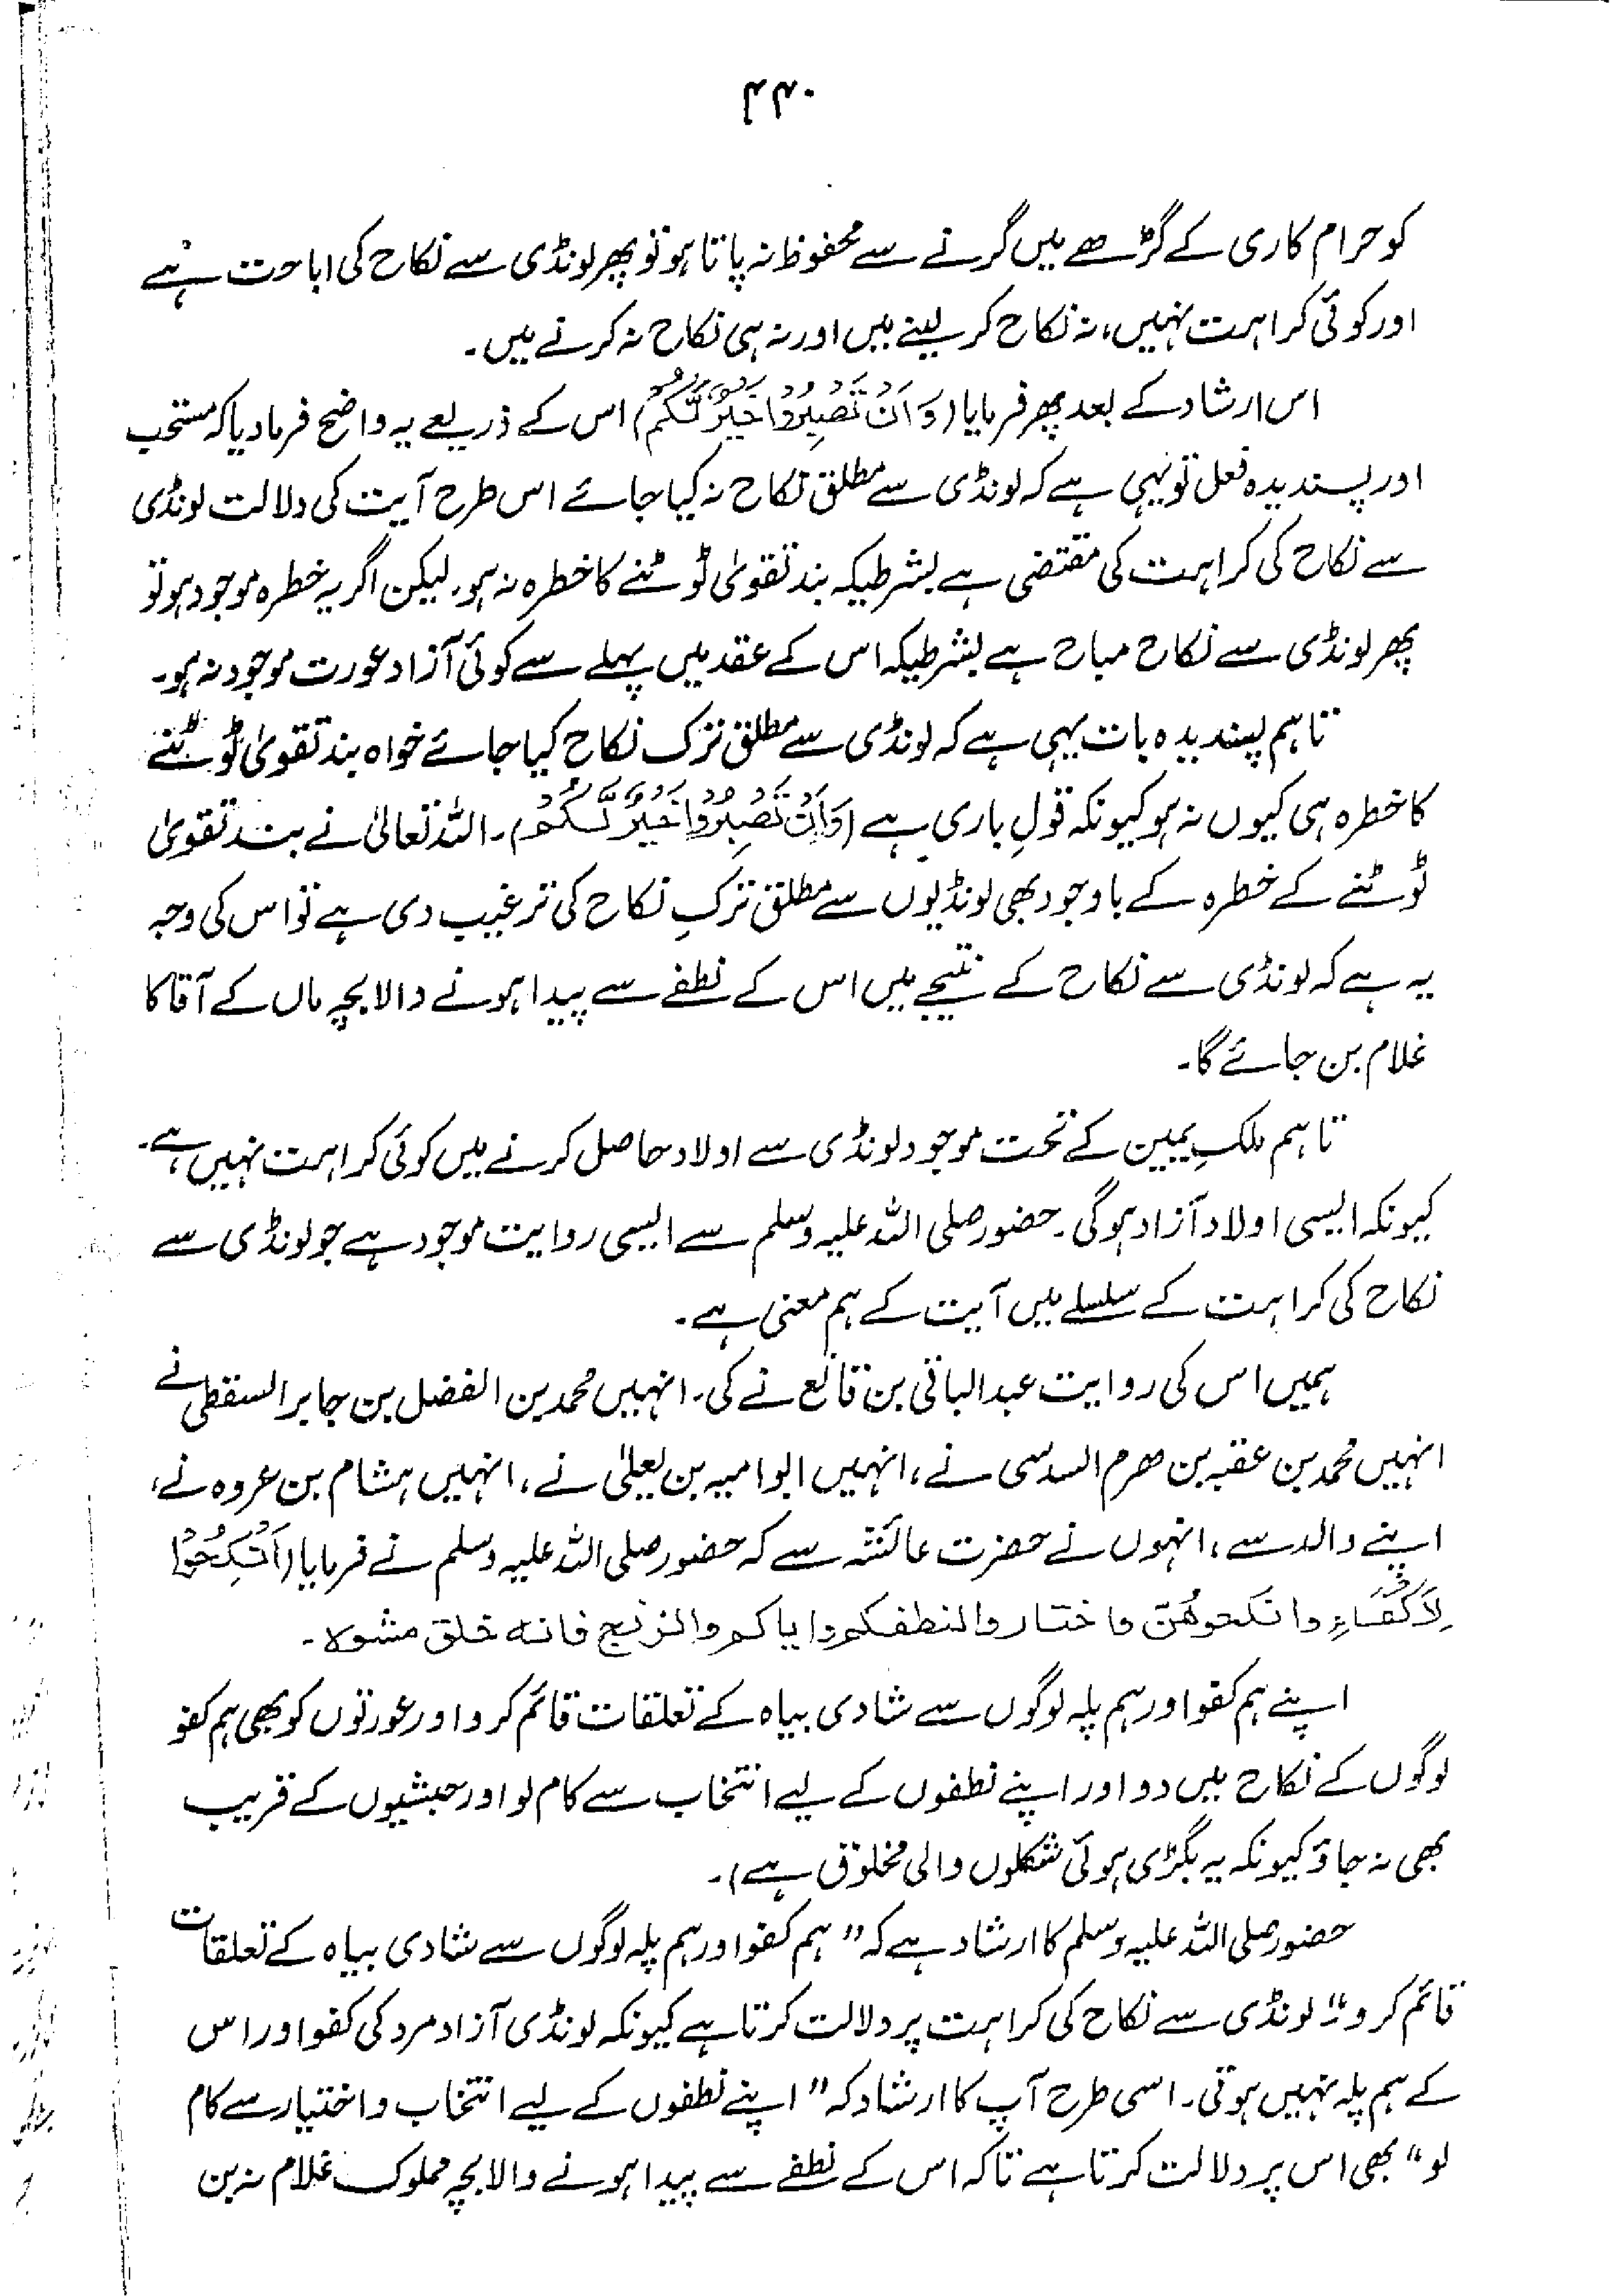 ۴۴۰
کو حرام کاری کے گڑھے میں گرنے سے محفوظ نہ پاتا ہو تو پھر لونڈی سے نکاح کی اباحت ہے
اور کوئی کراہت نہیں، نہ نکاح کر لینے میں اور نہ ہی نکاح نہ کرنے میں۔
اس ارشاد کے بعد پھر فرمایا (وَاَنْ تَصْبِرُوْا خَیْرٌ لَّکُمْ) اس کے ذریعے یہ واضح فرما دیا کہ مستحب
اور پسندیدہ فعل تو یہی ہے کہ لونڈی سے مطلق نکاح نہ کیا جائے اس طرح آیت کی دلالت لونڈی
سے نکاح کی کراہت کی مقتضی ہے بشرطیکہ بند تقویٰ ٹوٹنے کا خطرہ نہ ہو۔ لیکن اگر یہ خطرہ موجود ہو تو
پھر لونڈی سے نکاح مباح ہے بشرطیکہ اس کے عقد میں پہلے سے کوئی آزاد عورت موجود نہ ہو۔
تاہم پسندیدہ بات یہی ہے کہ لونڈی سے مطلق ترک نکاح کیا جائے خواہ بند تقویٰ ٹوٹنے
کا خطرہ ہی کیوں نہ ہو کیونکہ قولِ باری ہے (وَاَنْ تَصْبِرُوْا خَیْرٌ لَّکُمْ)۔ اللہ تعالیٰ نے بند تقویٰ
ٹوٹنے کے خطرہ کے باوجود بھی لونڈیوں سے مطلق ترکِ نکاح کی ترغیب دی ہے تو اس کی وجہ
یہ ہے کہ لونڈی سے نکاح کے نتیجے میں اس کے نطفے سے پیدا ہونے والا بچہ ماں کے آقا کا
غلام بن جائے گا۔
تاہم ملکِ یمین کے تحت موجود لونڈی سے اولاد حاصل کرنے میں کوئی کراہت نہیں ہے۔
کیونکہ ایسی اولاد آزاد ہوگی۔ حضور صلی اللہ علیہ وسلم سے ایسی روایت موجود ہے جو لونڈی سے
نکاح کی کراہت کے سلسلے میں آیت کے ہم معنی ہے۔
ہمیں اس کی روایت عبدالباقی بن قانع نے کی۔ انہیں محمد بن الفضل بن جابر السقطی نے
انہیں محمد بن عقبہ بن ھرم السدسی نے، انہیں ابوامیہ بن یعلیٰ نے، انہیں ہشام بن عروہ نے،
اپنے والد سے، انہوں نے حضرت عائشہ سے کہ حضور صلی اللہ علیہ وسلم نے فرمایا (اَنْکِحُوْا
لِاَکْفَاءِ وانکحوھُنّ واختاروا لنطفکم وایاکم والزنج فانہ خلق مشوہ۔
اپنے ہم کفو اور ہم پلہ لوگوں سے شادی بیاہ کے تعلقات قائم کرو اور عورتوں کو بھی ہم کفو
لوگوں کے نکاح میں دو اور اپنے نطفوں کے لیے انتخاب سے کام لو اور حبشیوں کے قریب
بھی نہ جاؤ کیونکہ یہ بگڑی ہوئی شکلوں والی مخلوق ہے)۔
حضور صلی اللہ علیہ وسلم کا ارشاد ہے کہ ”ہم کفو اور ہم پلہ لوگوں سے شادی بیاہ کے تعلقات
قائم کرو“ لونڈی سے نکاح کی کراہت پر دلالت کرتا ہے کیونکہ لونڈی آزاد مرد کی کفو اور اس
کے ہم پلہ نہیں ہوتی۔ اسی طرح آپ کا ارشاد کہ ”اپنے نطفوں کے لیے انتخاب و اختیار سے کام
لو“ بھی اس پر دلالت کرتا ہے تاکہ اس کے نطفے سے پیدا ہونے والا بچہ مملوک غلام نہ بن